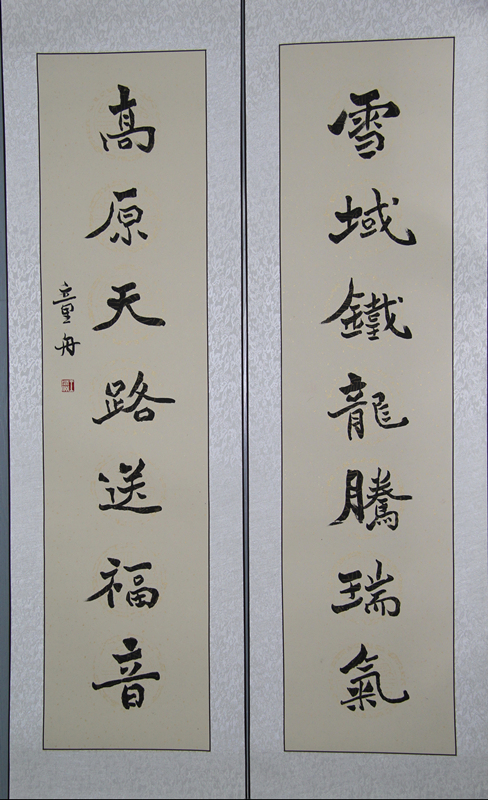 雪域鐵龍騰瑞氣
高原天路送福音
童舟